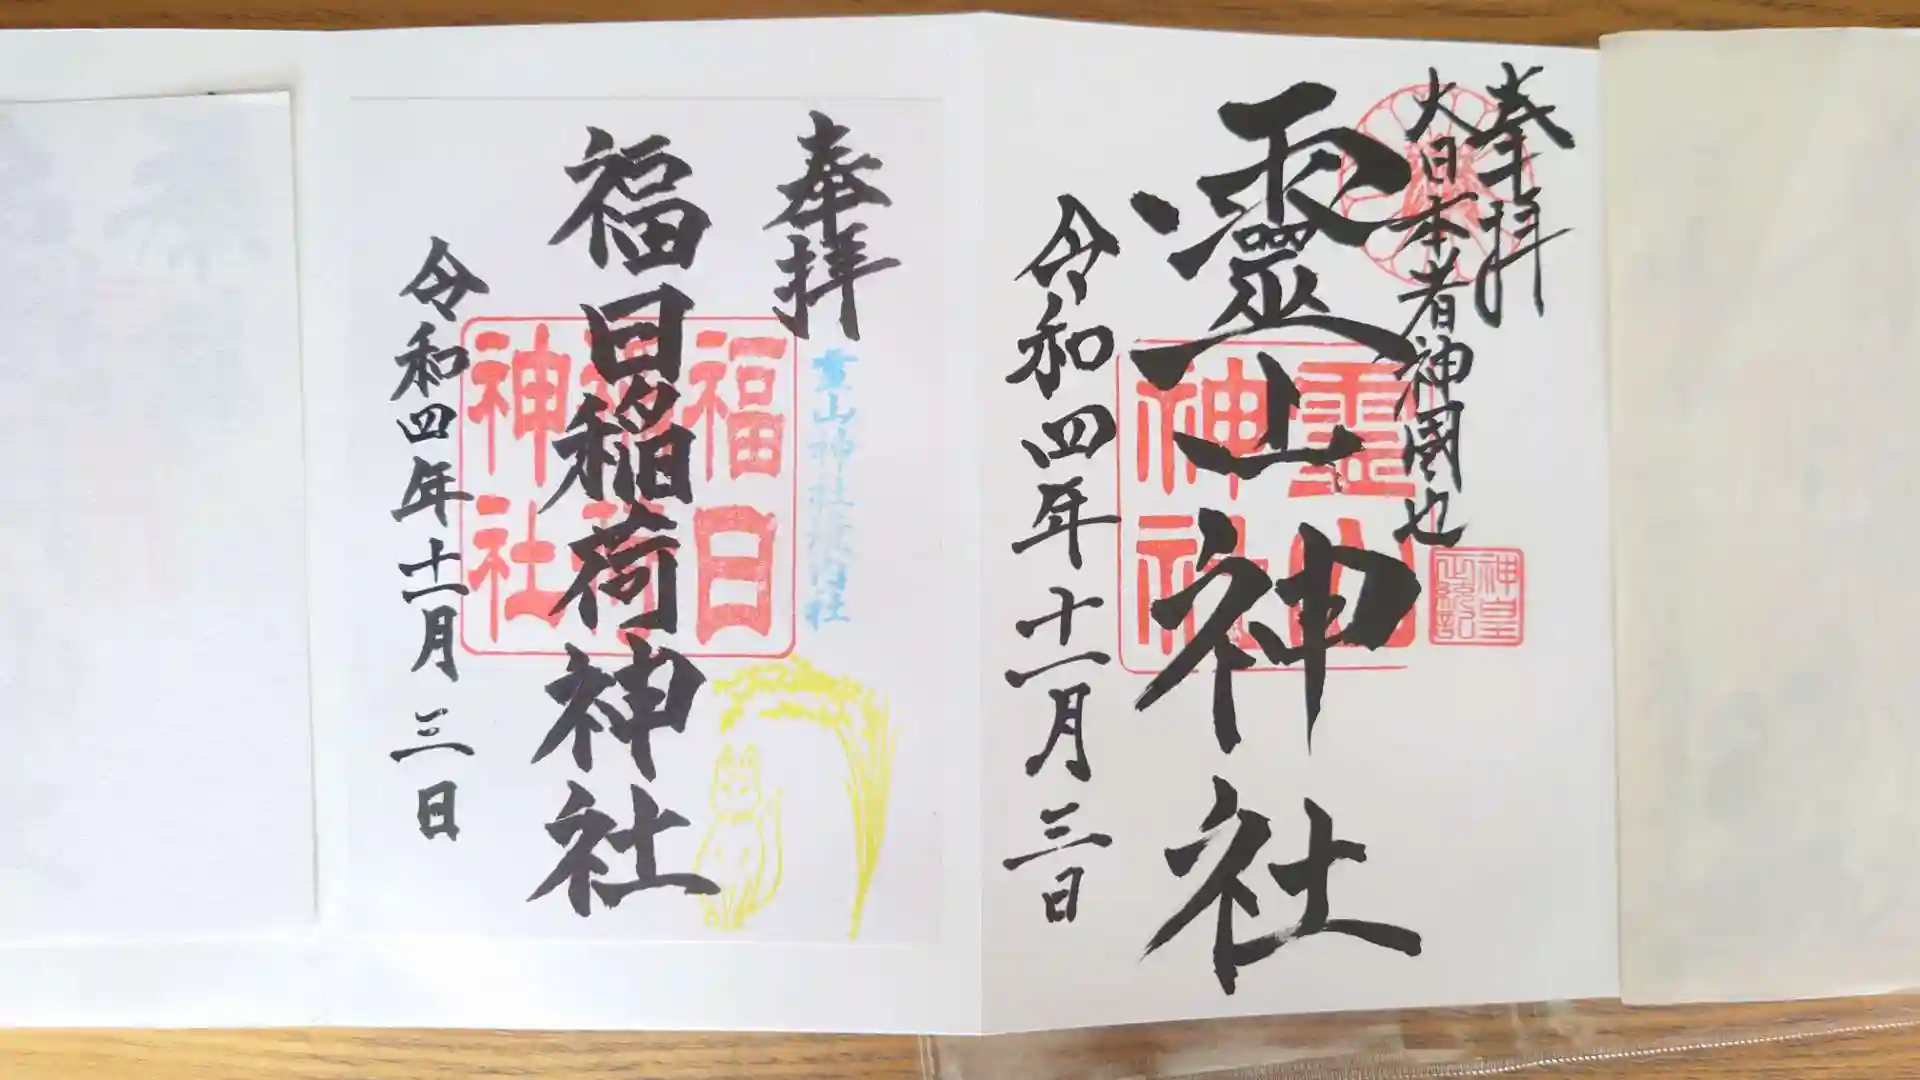 奉拝
大日本者神國也
靈山神社
令和四年十一月三日
霊山神社
神皇正統記
奉拝
霊山神社境内社
福日稲荷神社
令和四年十一月三日
福日稲荷神社